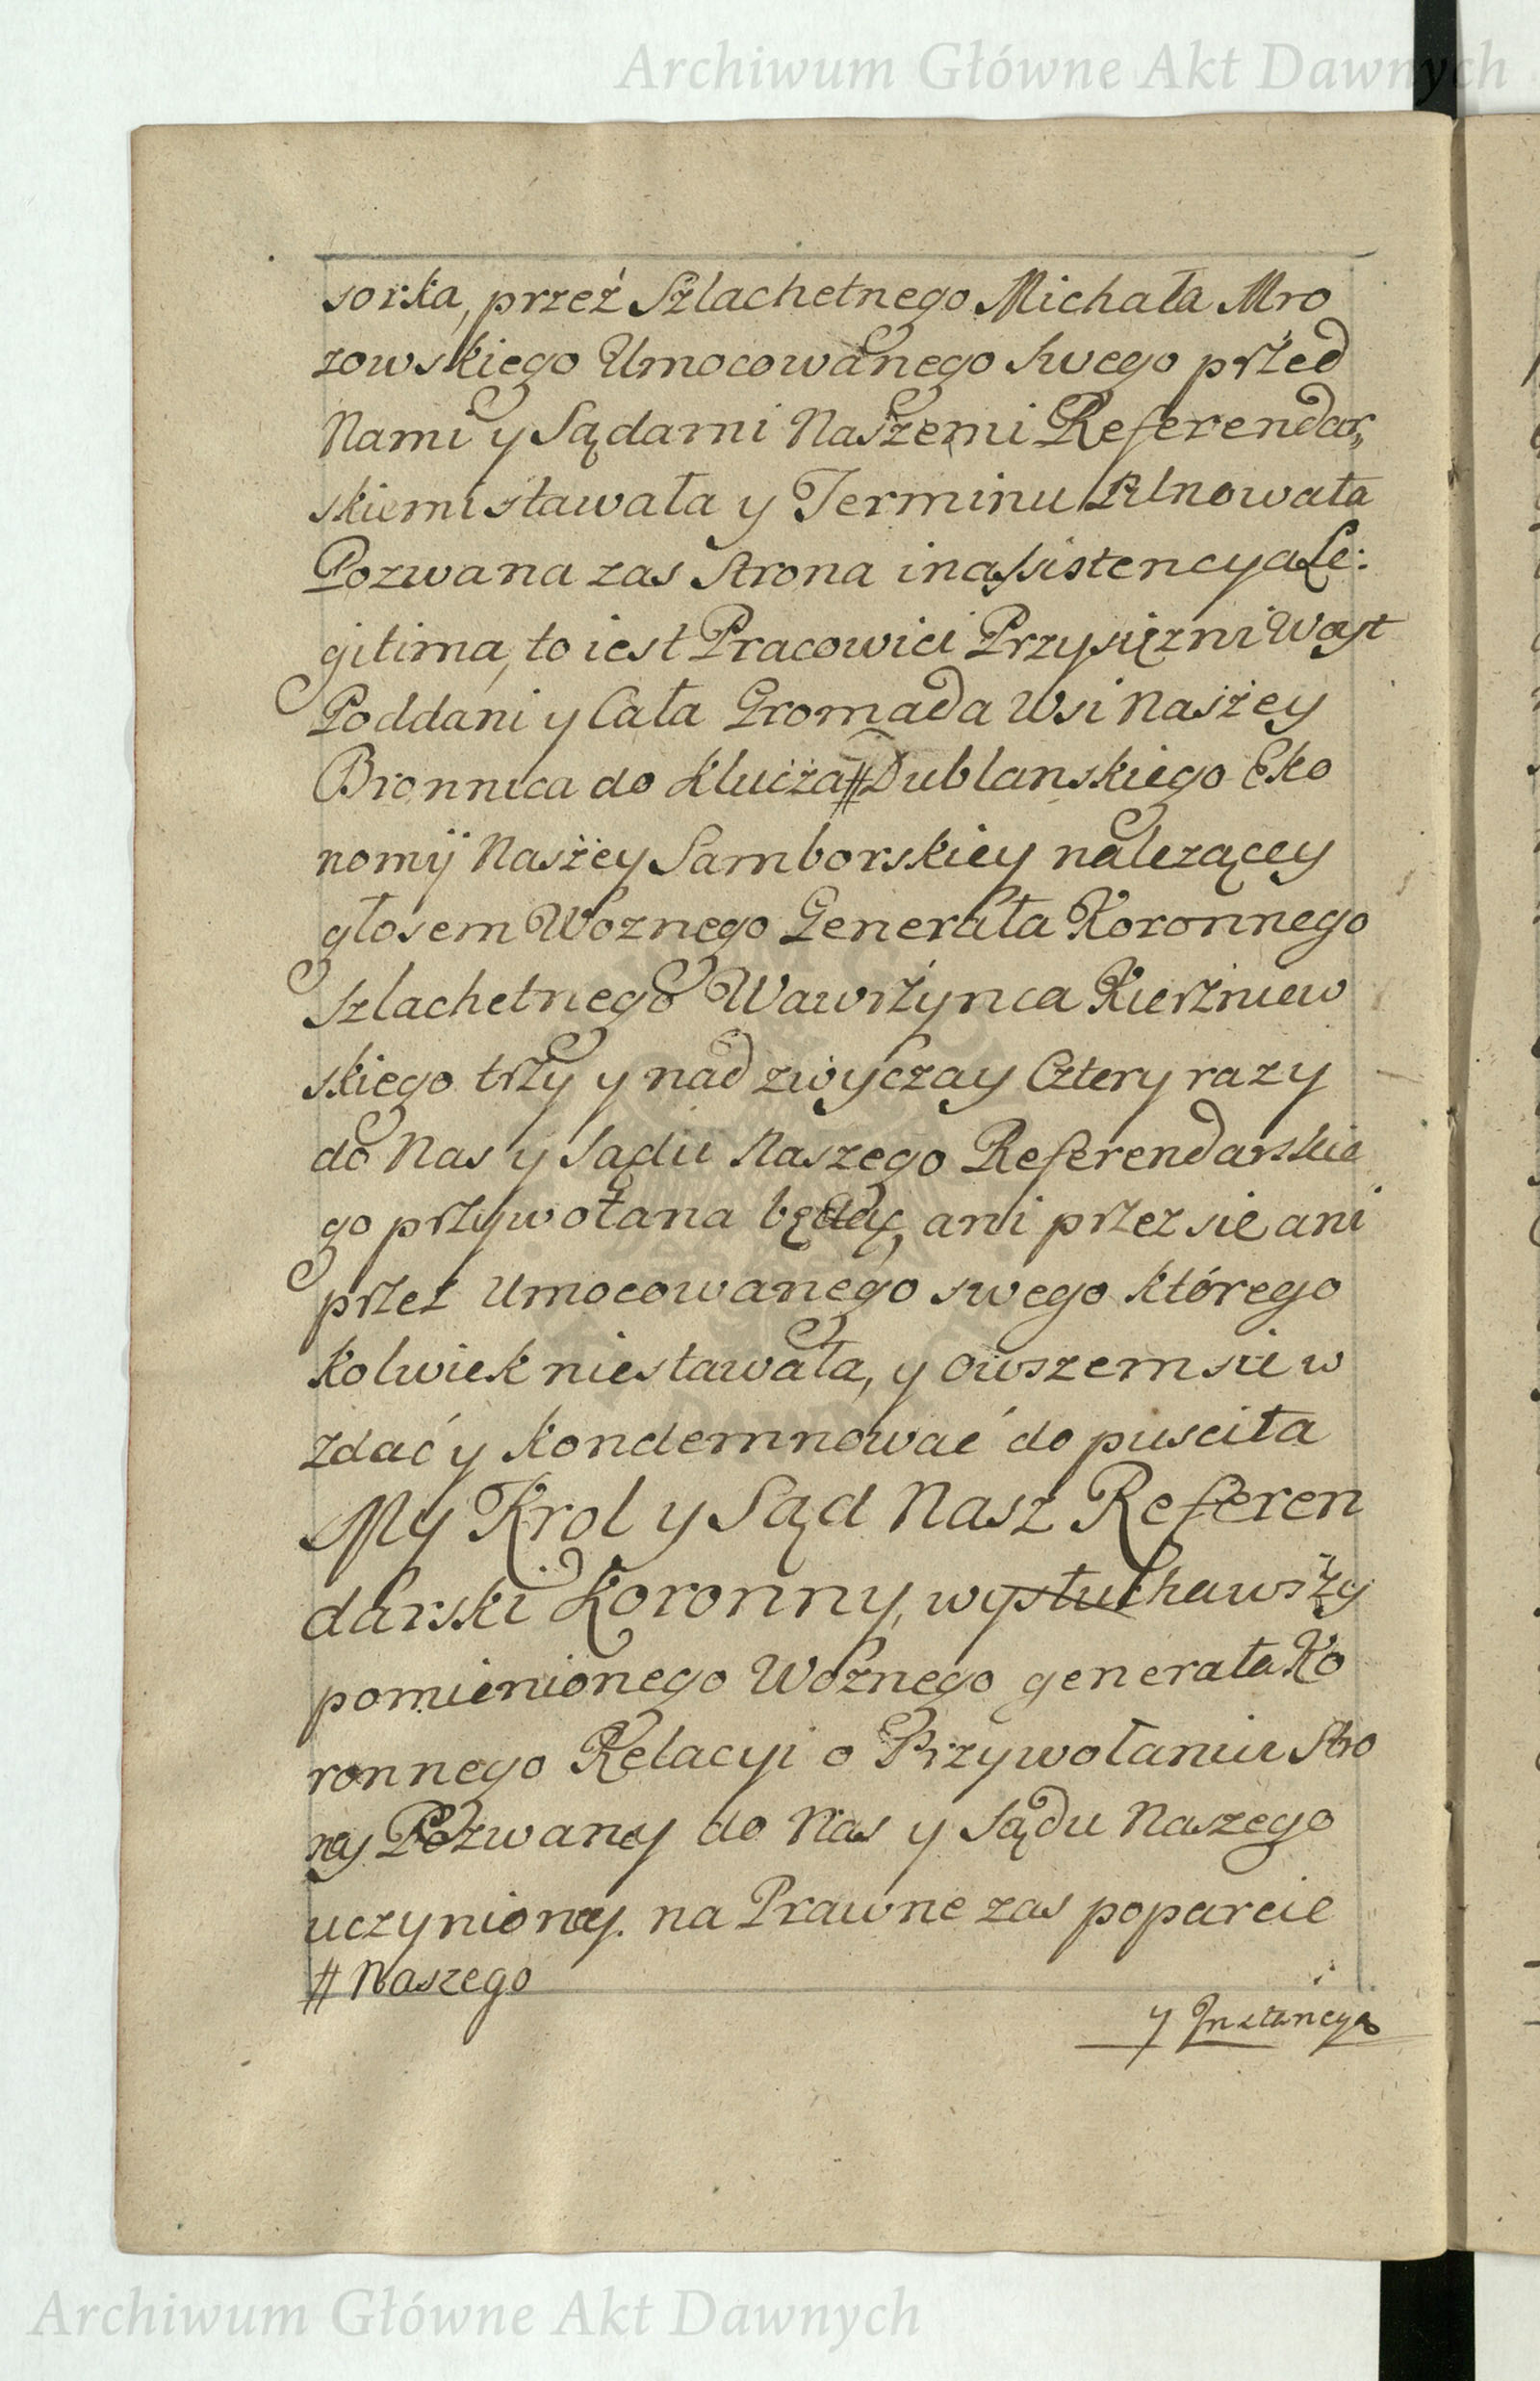 Archiwum Główne Akt Dawnych
sorka, przeż Szlachetnego Michała Mro
zowskiego Umocowanego swego przed
Nami y Sądami Naszemi Referendar„
skiemi stawała y Terminu Pilnowała
Pozwana zas Strona in assistencya Le:
gitima, to iest Pracowici Przysiężni Woyt
Poddani y Cała Gromada Wsi Naszey
Bronnica do Klucza # Dublanskiego Eko
nomij Naszey Samborskiey należącey
głosem Woznego Generała Koronnego
Szlachetnego Wawrzynca Kierzniew
skiego trzy y nad zwyczay Cztery razy
do Nas y Sądu Naszego Referendarskie
go przywołana będąc, ani przez sie ani
przez Umocowanego swego którego
kolwiek niestawała, y owszem sie w
zdać y kondemnować do puscita
My Krol y Sąd Nasz Referen
darski Koronny, wysłuchawszy
pomienionego Woznego generała Ko
ronnego Relacyi o Przywołaniu Stro
ny Pozwaney do Nas y Sądu Naszego
uczynioney. na Prawne zas poparcie
# Naszego
y Instancyą
Archiwum Główne Akt Dawnych